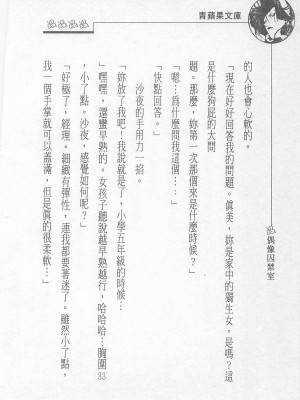 青蘋果文庫
偶像囚禁室
的人也會心軟的。
「現在好好回答我的問題。眞美，妳是家中的獨生女，是嗎？這
是什麼狗屁的大問
題。那麼，妳第一次那個來是什麼時候？」
「嗯…爲什麼問我這個……」
「快點回答。」
沙夜的手用力一掐。
「妳放了我吧！我說就是了，小學五年級的時候…
」嘿嘿，還蠻早熟的。女孩子聽說越早熟越行，哈哈哈…胸圍33
，小了點。沙夜，感覺如何呢？」
「好極了，經理。細緻有彈性，連我都要著迷了。雖然小了點，
我一個手掌就可以蓋滿，但是眞的很柔軟…」